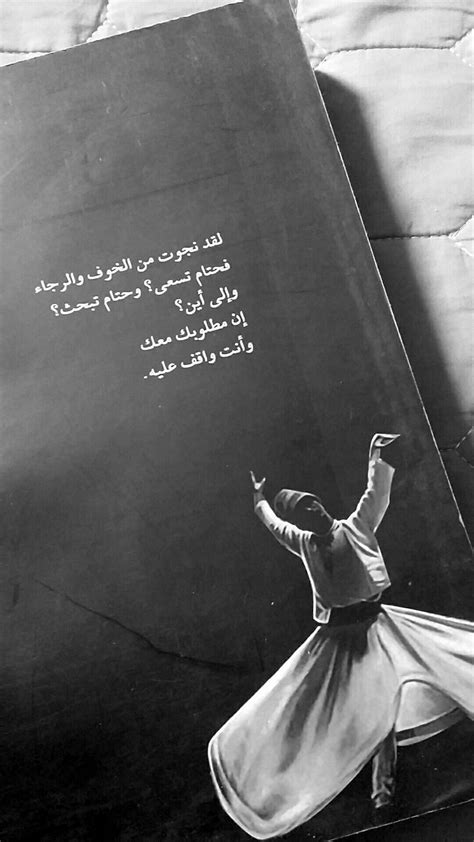 لقد نجوت من الخوف والرجاء
فحتام تسعى؟ وحتام تبحث؟
وإلى أين؟
إن مطلوبك معك
وأنت واقف عليه.